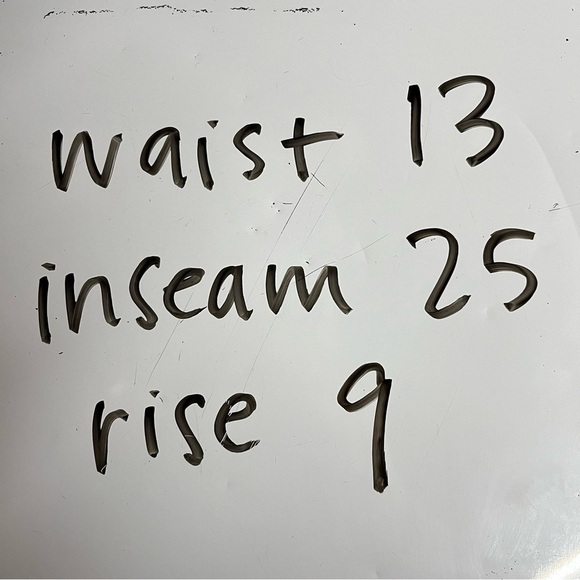 waist 13
inseam 25
rise 9